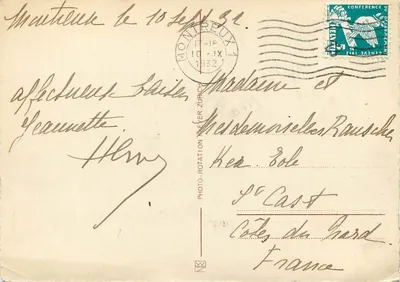 Montreux le 10 Sept 32.
MONTREUX 1
10. IX
1932
CONFERENCE
HELVETIA
5
affectueux baisers
Jeannette.
PHOTO-ROTATION ZURICH
Madame et
Mesdemoiselles
Ker. Eole
St Cast
Côtes du Nord
France